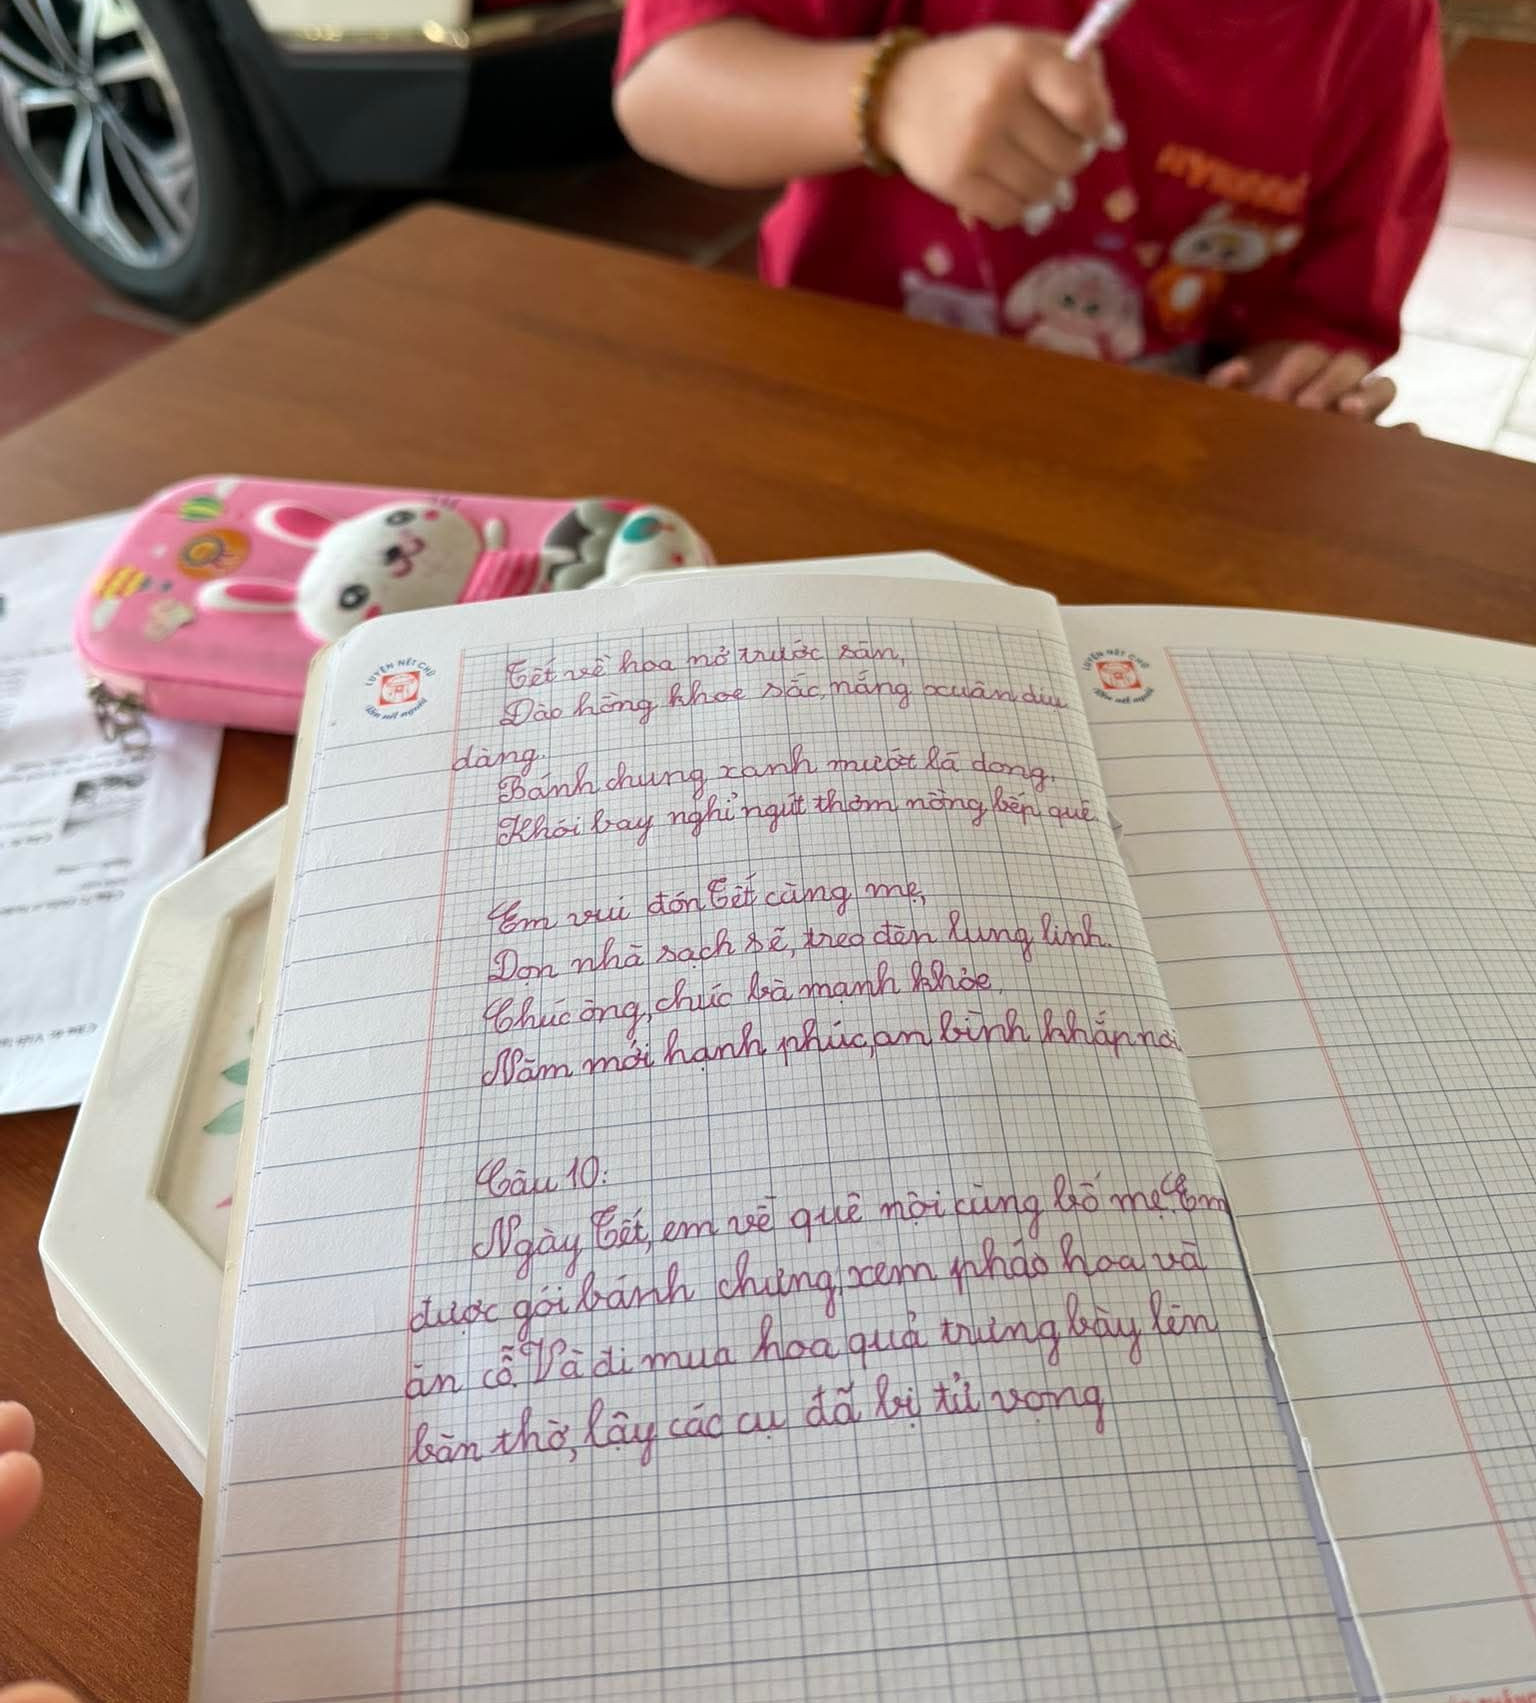 LUYỆN NÉT CHỮ
Rèn nết người
Tết về hoa nở trước sân,
Đào hồng khoe sắc, nắng xuân dịu
dàng.
Bánh chưng xanh mướt lá dong,
Khói bay nghi ngút thơm nồng bếp quê
Em vui đón Tết cùng mẹ,
Dọn nhà sạch sẽ, treo đèn lung linh.
Chúc ông, chúc bà mạnh khỏe,
Năm mới hạnh phúc, an bình khắp nơi
Câu 10:
Ngày Tết, em về quê nội cùng bố mẹ. Em
được gói bánh chưng, xem pháo hoa và
ăn cỗ. Và đi mua hoa quả trưng bày lên
bàn thờ, lậy các cụ đã bị tử vọng
LUYỆN NÉT CHỮ
Rèn nết người